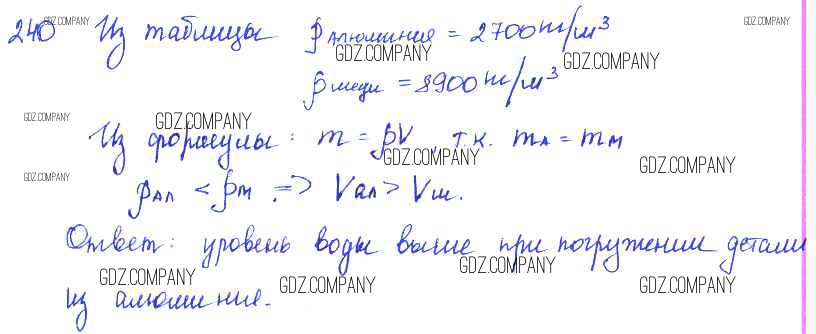 240 Из таблицы ρ алюминия = 2700 кг/м³
ρ меди = 8900 кг/м³
Из формулы: m = ρV, т.к. mА = mМ
ρАл < ρМ => Vал > Vм.
Ответ: уровень воды выше при погружении детали
из алюминия.
GDZ.COMPANY
GDZ.COMPANY
GDZ.COMPANY
GDZ.COMPANY
GDZ.COMPANY
GDZ.COMPANY
GDZ.COMPANY
GDZ.COMPANY
GDZ.COMPANY
GDZ.COMPANY
GDZ.COMPANY
GDZ.COMPANY
GDZ.COMPANY
GDZ.COMPANY